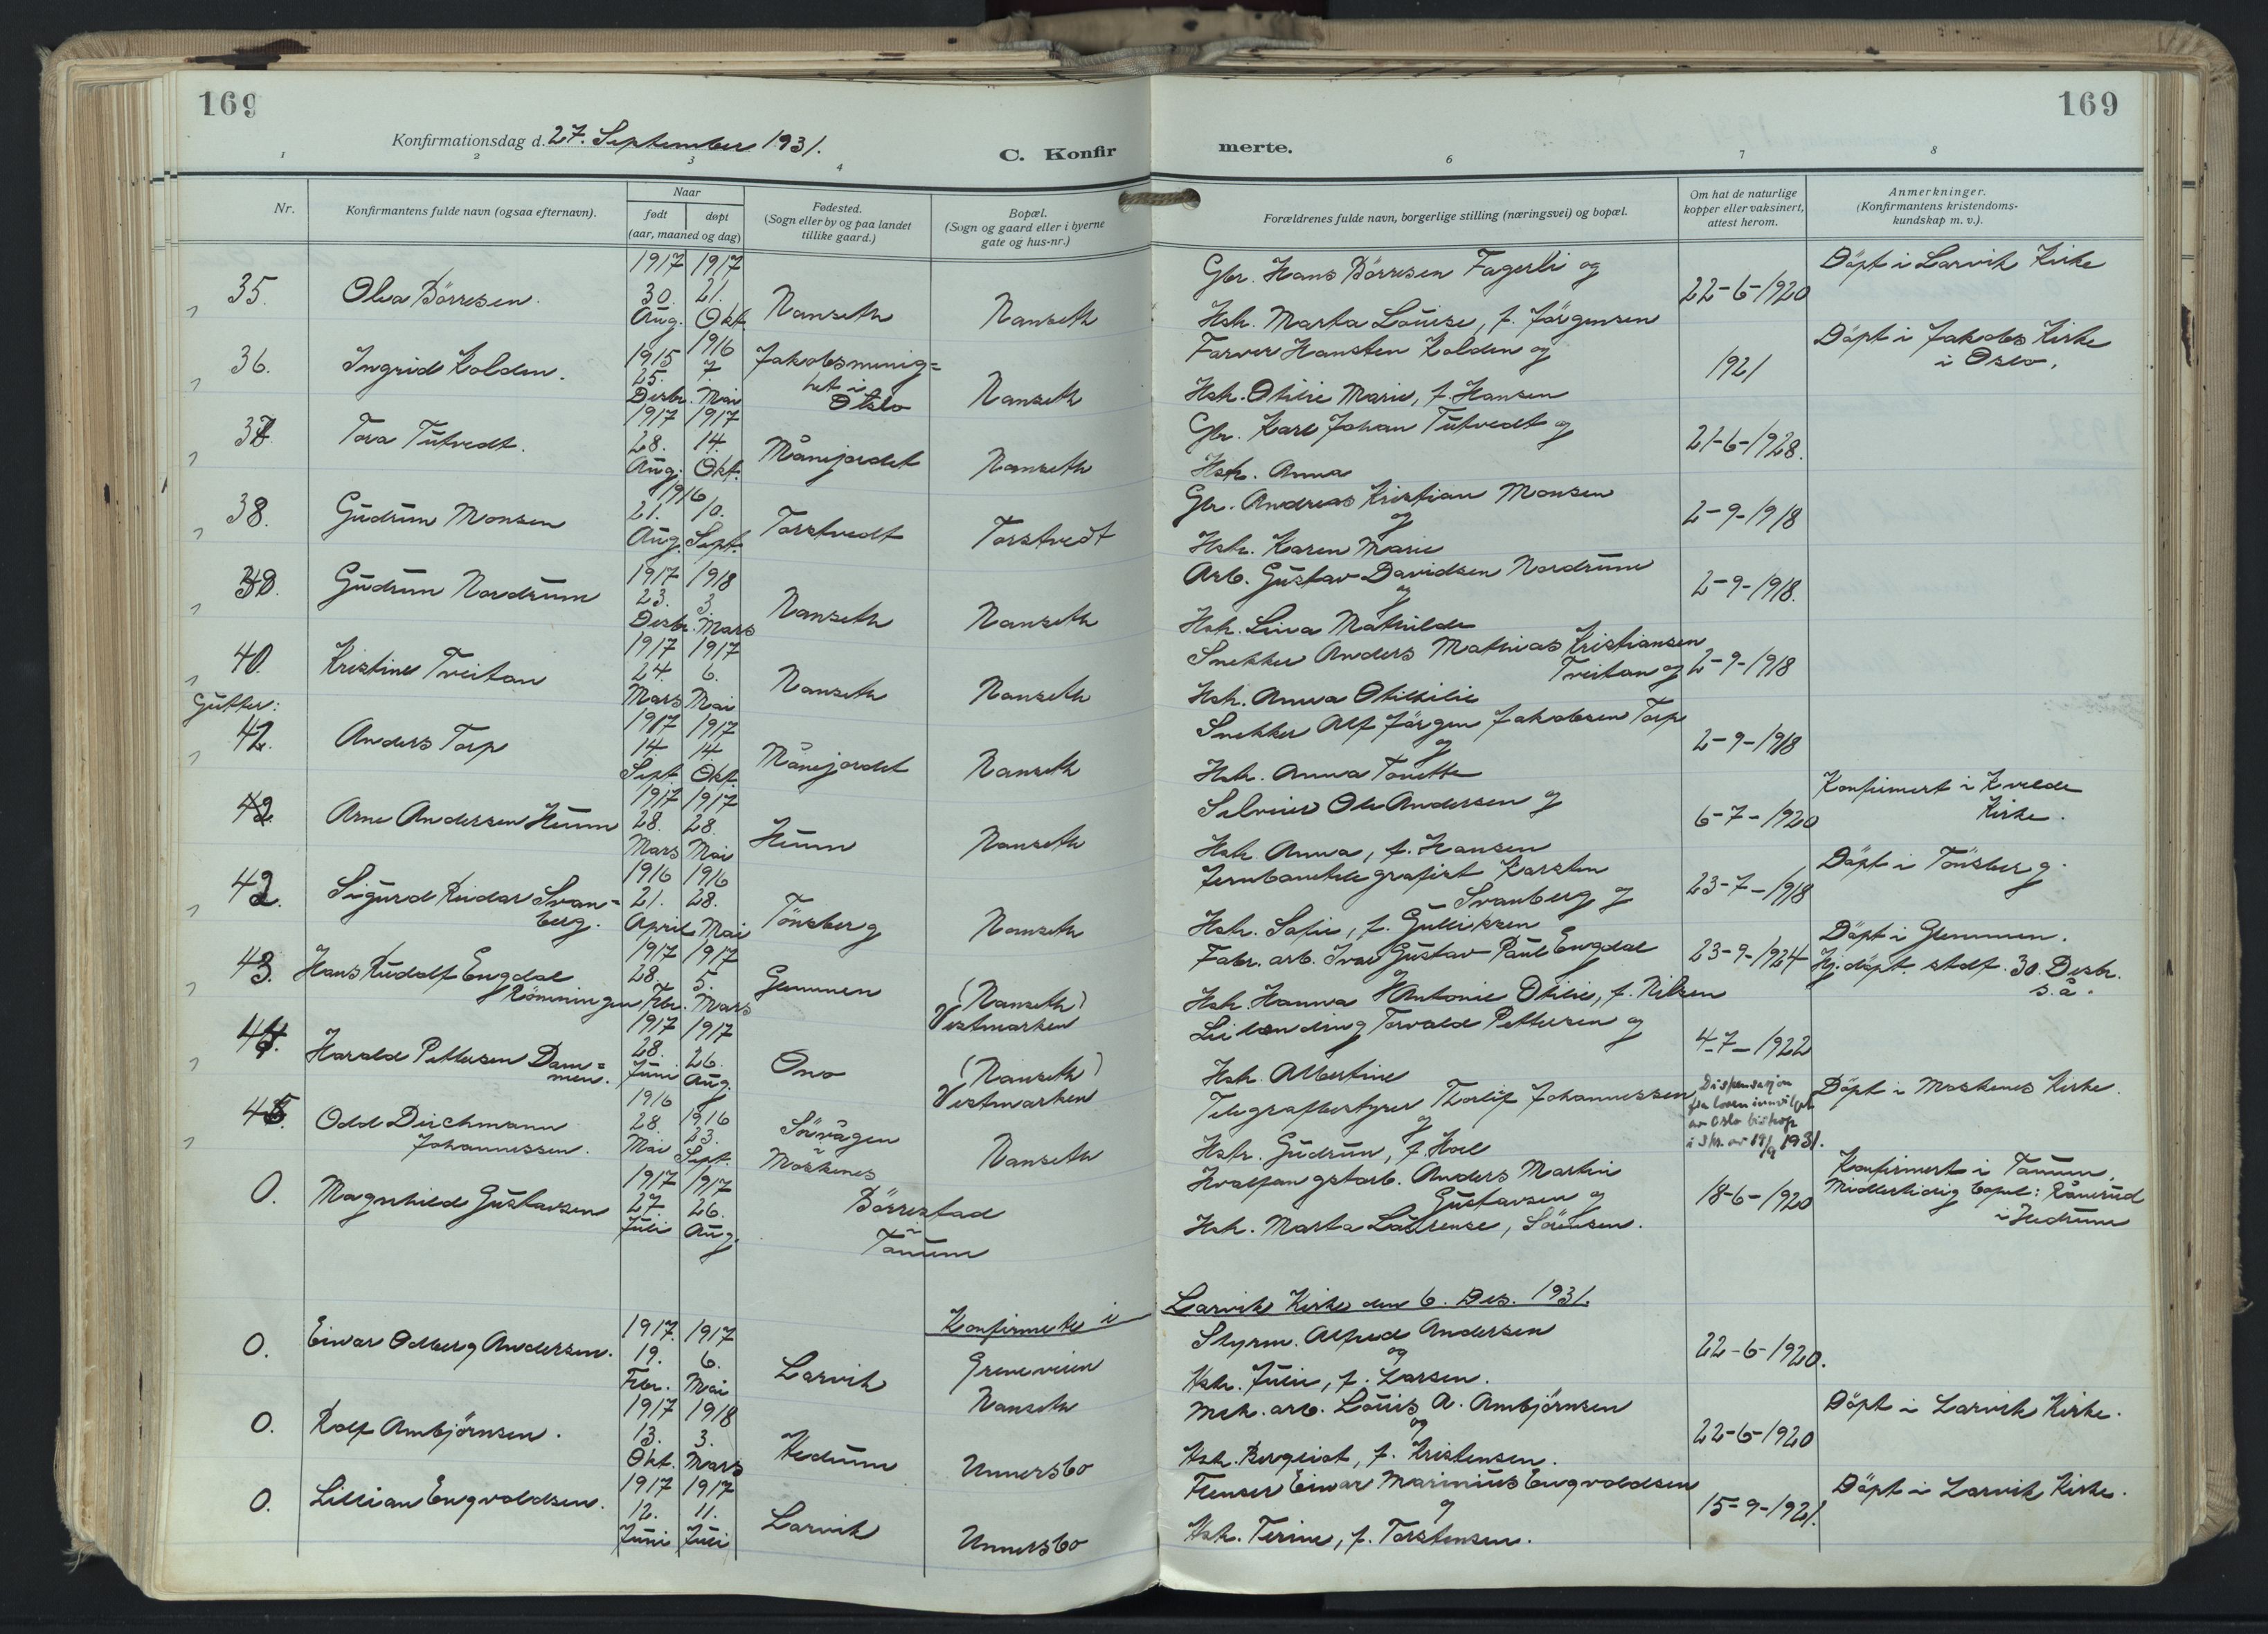 169
169
Konfirmationsdag d. 27. September 1931.
C. Konfir
merte.
1
2
3
4
6
7
8
Nr.
Konfirmantens fulde navn (ogsaa efternavn).
Naar
født
døpt
(aar, maaned og dag)
Fødested.
(Sogn eller by og paa landet
tillike gaard.)
Bopæl.
(Sogn og gaard eller i byerne
gate og hus-nr.)
Forældrenes fulde navn, borgerlige stilling (næringsvei) og bopæl.
Om hat de naturlige
kopper eller vaksinert,
attest herom.
Anmerkninger.
(Konfirmantens kristendoms-
kundskap m. v.).
1917 1917
35. Olva Börresen. 30. 21. Nanseth Nanseth Gbr. Hans Börresen Fagerli og 22-6-1920 Döpt i Larvik Kirke
Aug. Okt. Hstr. Marta Louise, f. Jörgensen
1915 1916
36. Ingrid Kolden. 25. 7. Jakobsmenig= Nanseth Farver Hansten Kolden og 1921 Döpt i Jakobs Kirke
Desbr. Mai het i Hstr. Otilie Marie, f. Hansen i Oslo.
Oslo
1917 1917
37. Tova Tutvedt. 28. 14. Månejordet Nanseth Gbr. Karl Johan Tutvedt og 21-6-1928.
Aug. Okt. Hstr. Anna
1916
38. Gudrun Monsen 21. 10. Torstvedt Torstvedt Gbr. Andreas Kristian Monsen 2-9-1918
Aug. Sept. og
Hstr. Karen Marie
1917 1918
Gudrun Nordrum 23. 3. Nanseth Nanseth Arb. Gustav Davidsen Nordrum 2-9-1918.
Desbr. Mars og
Hstr. Lina Mathilde
1917 1917
40. Kristine Tveitan 24. 6. Nanseth Nanseth Snekker Anders Mathias Kristiansen 2-9-1918
Mars Mai Tveitan og
Hstr. Anna
Gutter:
1917 1917
42. Anders Torp 14. 14. Månejordet Nanseth Snekker Alf Jörgen Jakobsen Torp 2-9-1918
Sept. Okt. og
Hstr. Anna Tonette
1917 1917
42 Arne Andersen Heum 28. 28. Heum Nanseth Ole Andersen og 6-7-1920 Konfirmert i Kvelde
Mars Mai Hstr. Anna, f. Hansen Kirke.
1916 1916
42. Sigurd Reidar Svan= 21. 28. Tönsberg Nanseth Jernbanetelegrafist Karsten 23-7-1918 Döpt i Tönsberg.
berg. April Mai Svanberg og
Hstr. Sofie, f. Gulliksen
1917 1917
43. Hans Rudolf Engdal 28. 5. Glemmen (Nanseth) Fabr. arb. Ivar Gustav Paul Engdal 23-9-1924 Döpt i Glemmen.
Römningen Febr. Mars Vestmarken Hstr. Hanna Antonie Otilie, f. Nilsen Hj. döpt stdf. 30. Desbr.
s.å.
1917 1917
44. Harald Pettersen Dam= 28. 26. Ono (Nanseth) Leilending Torvald Pettersen og 4-7-1922
men. Juni Aug. Vestmarken Hstr. Albertine
1916 1916
45. Odd Deichmann 28. 23. Sörvågen Nanseth Telegrafbestyrer Thorleif Johannessen Dispensasjon Döpt i Moskenes Kirke.
Johannessen. Mai Sept. i og fra loven innvilget
Moskenes Hstr. Gudrun, f. Hoel av Oslo biskop
i skr. av 19/9 1931.
1917 1917
0. Magnhild Gustavsen 27. 26. Börrestad Hvalfangstarb. Anders Martin 18-6-1920 Konfirmert i Tanum.
Juli Aug. i Gustavsen og Midlertidig bopel: Rånerud
Tanum Hstr. Marta Laurense, Sörensen. i Hedrum
Konfirmerte i Larvik Kirke den 6. Des. 1931.
1917. 1917
0. Einar Odberg Andersen. 19. 6. Larvik Greveveien Styrm. Alfred Andersen 22-6-1920.
Febr. Mai Nanseth og
Hstr. Julie, f. Larsen.
1917 1918
0. Rolf Ambjörnsen. 13. 3. Hedrum Unnersbo Mek. arb. Louis A. Ambjörnsen 22-6-1920 Döpt i Larvik Kirke.
Okt. Mars og
Hstr. Bergliot, f. Kristensen.
1917 1917
0. Lillian Engvoldsen. 12. 11. Larvik Unnersbo Flenser Einar Marinius Engvoldsen 15-9-1921. Döpt i Larvik Kirke.
Juni Juli og
Hstr. Terine, f. Torstensen.